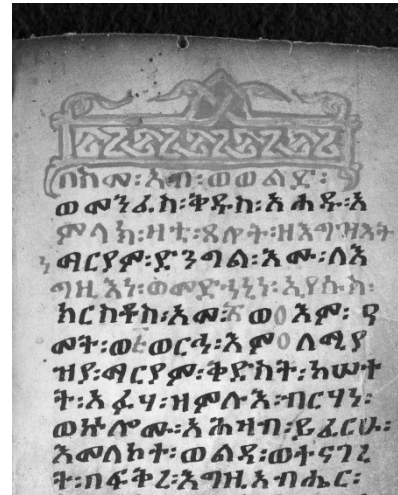 በስመ፡አብ፡ወወልድ፡
ወመንፈስ፡ቅዱስ፡አሐዱ፡አ
ምላክ፡ዛቲ፡ጸሎት፡ዘእግዝእት
ነ ማርያም፡ድንግል፡እሙ፡ለእ
ግዚእነ፡ወመድኃኒነ፡ኢየሱስ፡
ክርስቶስ፡አመ፡ ወ እም፡
መት፡ ወርኃ፡እም ለሚያ
ዝያ፡ማርያም፡ቅድስት፡
ት፡እፌሃ፡ዝምሉእ፡ብርሃነ፡
ወኵሎሙ፡አሕዛብ፡ይፈርሁ፡
እመለኮት፡ወልዳ፡ወተናገረ
ት፡በፍቅረ፡እግዚአብሔር፡